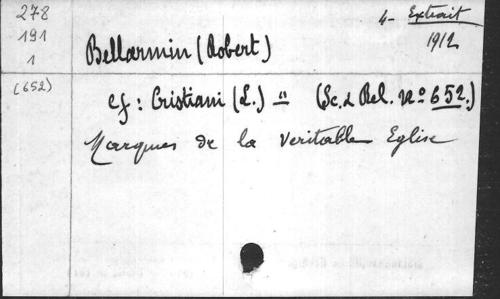 278
191
1
(652)
4- Extrait
1912
Bellarmin (Robert)
cf : Cristiani (L.) = (Sc. & Rel. No 652.)
Marques de la Veritable Eglise